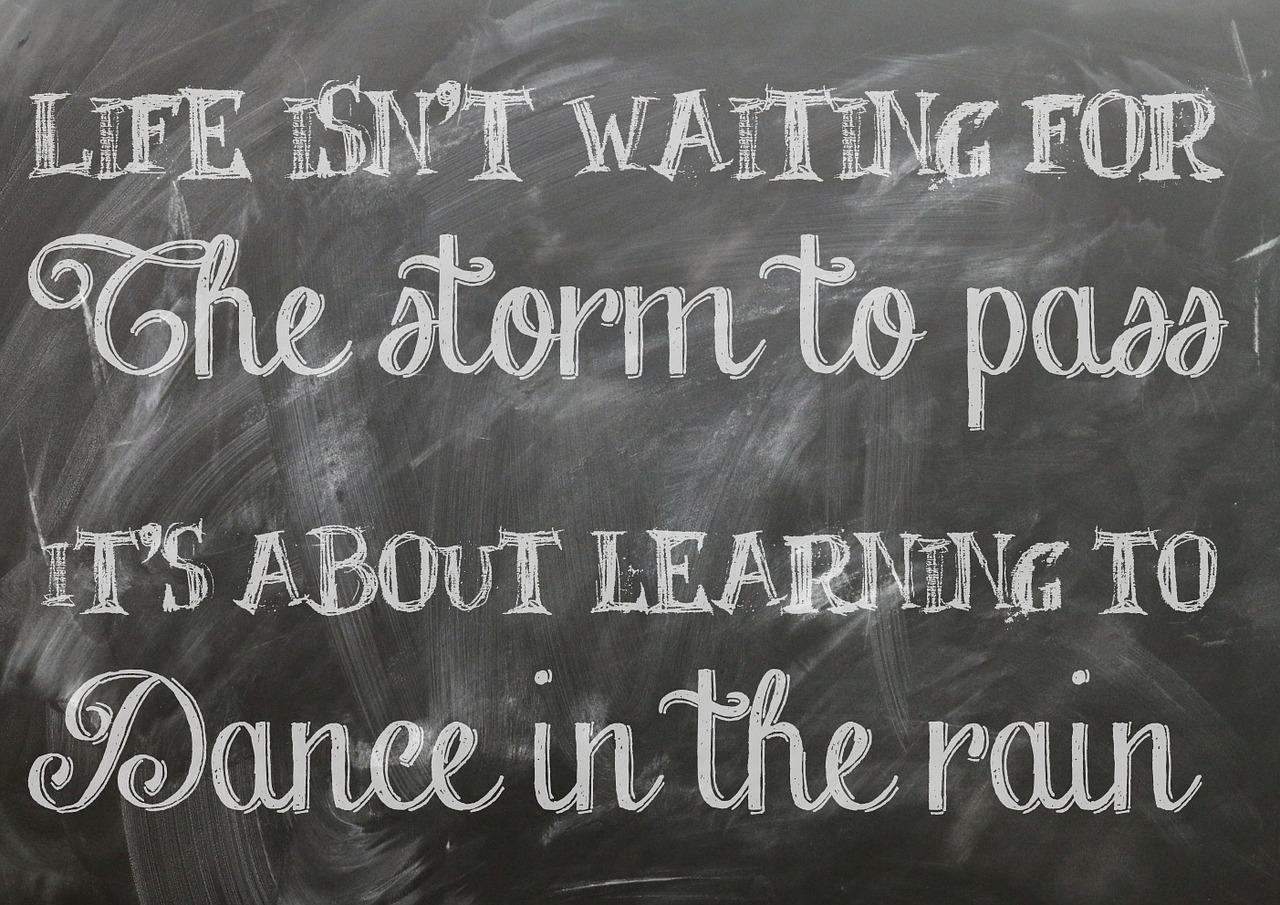 LIFE ISN'T WAITING FOR
The storm to pass
IT'S ABOUT LEARNING TO
Dance in the rain